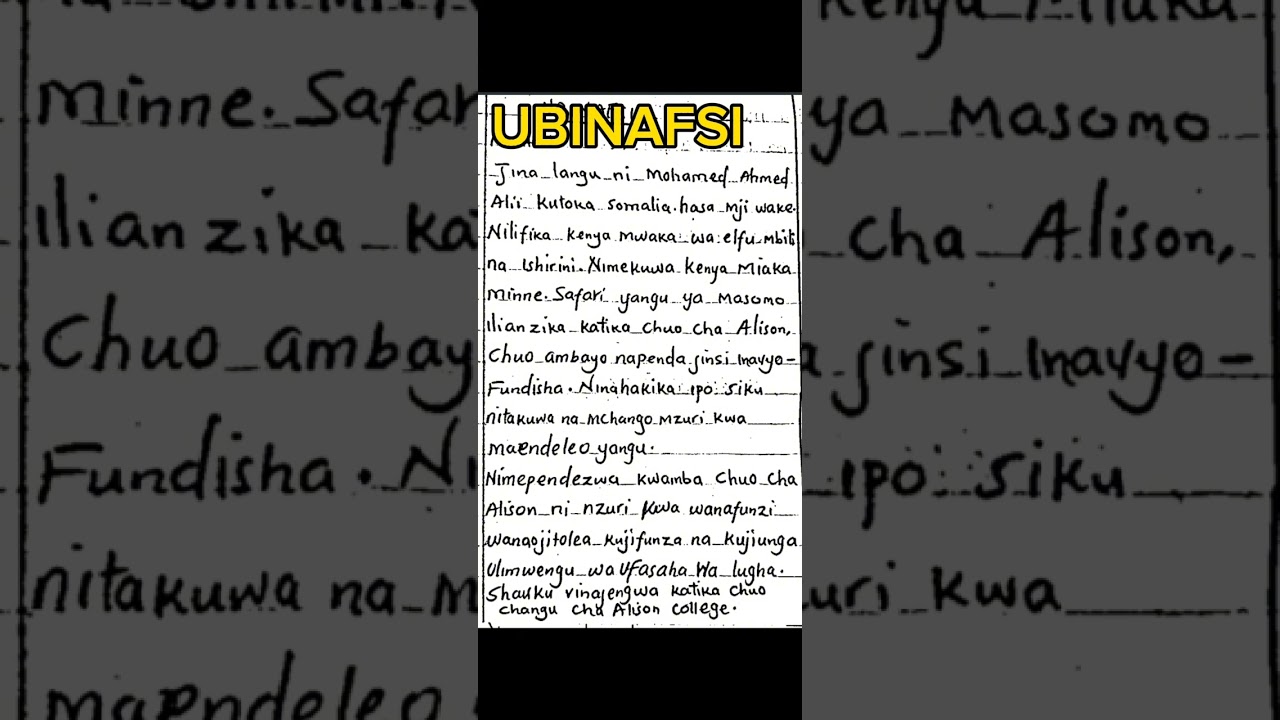 UBINAFSI
Jina langu ni Mohamed Ahmed
Alii kutoka somalia hasa mji wake.
Nilifika kenya mwaka wa elfu mbili
na Ishirini. Nimekuwa Kenya Miaka
Minne. Safari yangu ya Masomo
Ilianzika katika Chuo cha Alison,
Chuo ambayo napenda jinsi Inavyo-
Fundisha. Ninahakika ipo siku
nitakuwa na mchango mzuri kwa
maendeleo yangu.
Nimependezwa kwamba Chuo cha
Alison ni nzuri kwa wanafunzi
wanaojitolea kujifunza na kujiunga
Ulimwengu wa Ufasaha wa lugha.
Shauku vinajengwa katika chuo
changu cha Alison college.